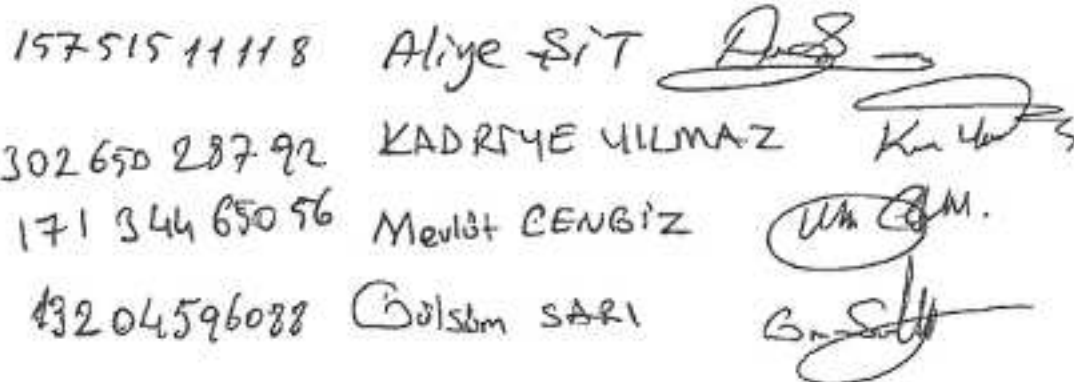 15751511118 Aliye SİT
302 650 287 92 KADRİYE YILMAZ
171 344 650 56 Mevlüt CENGİZ
13204596088 Gülsüm SARI